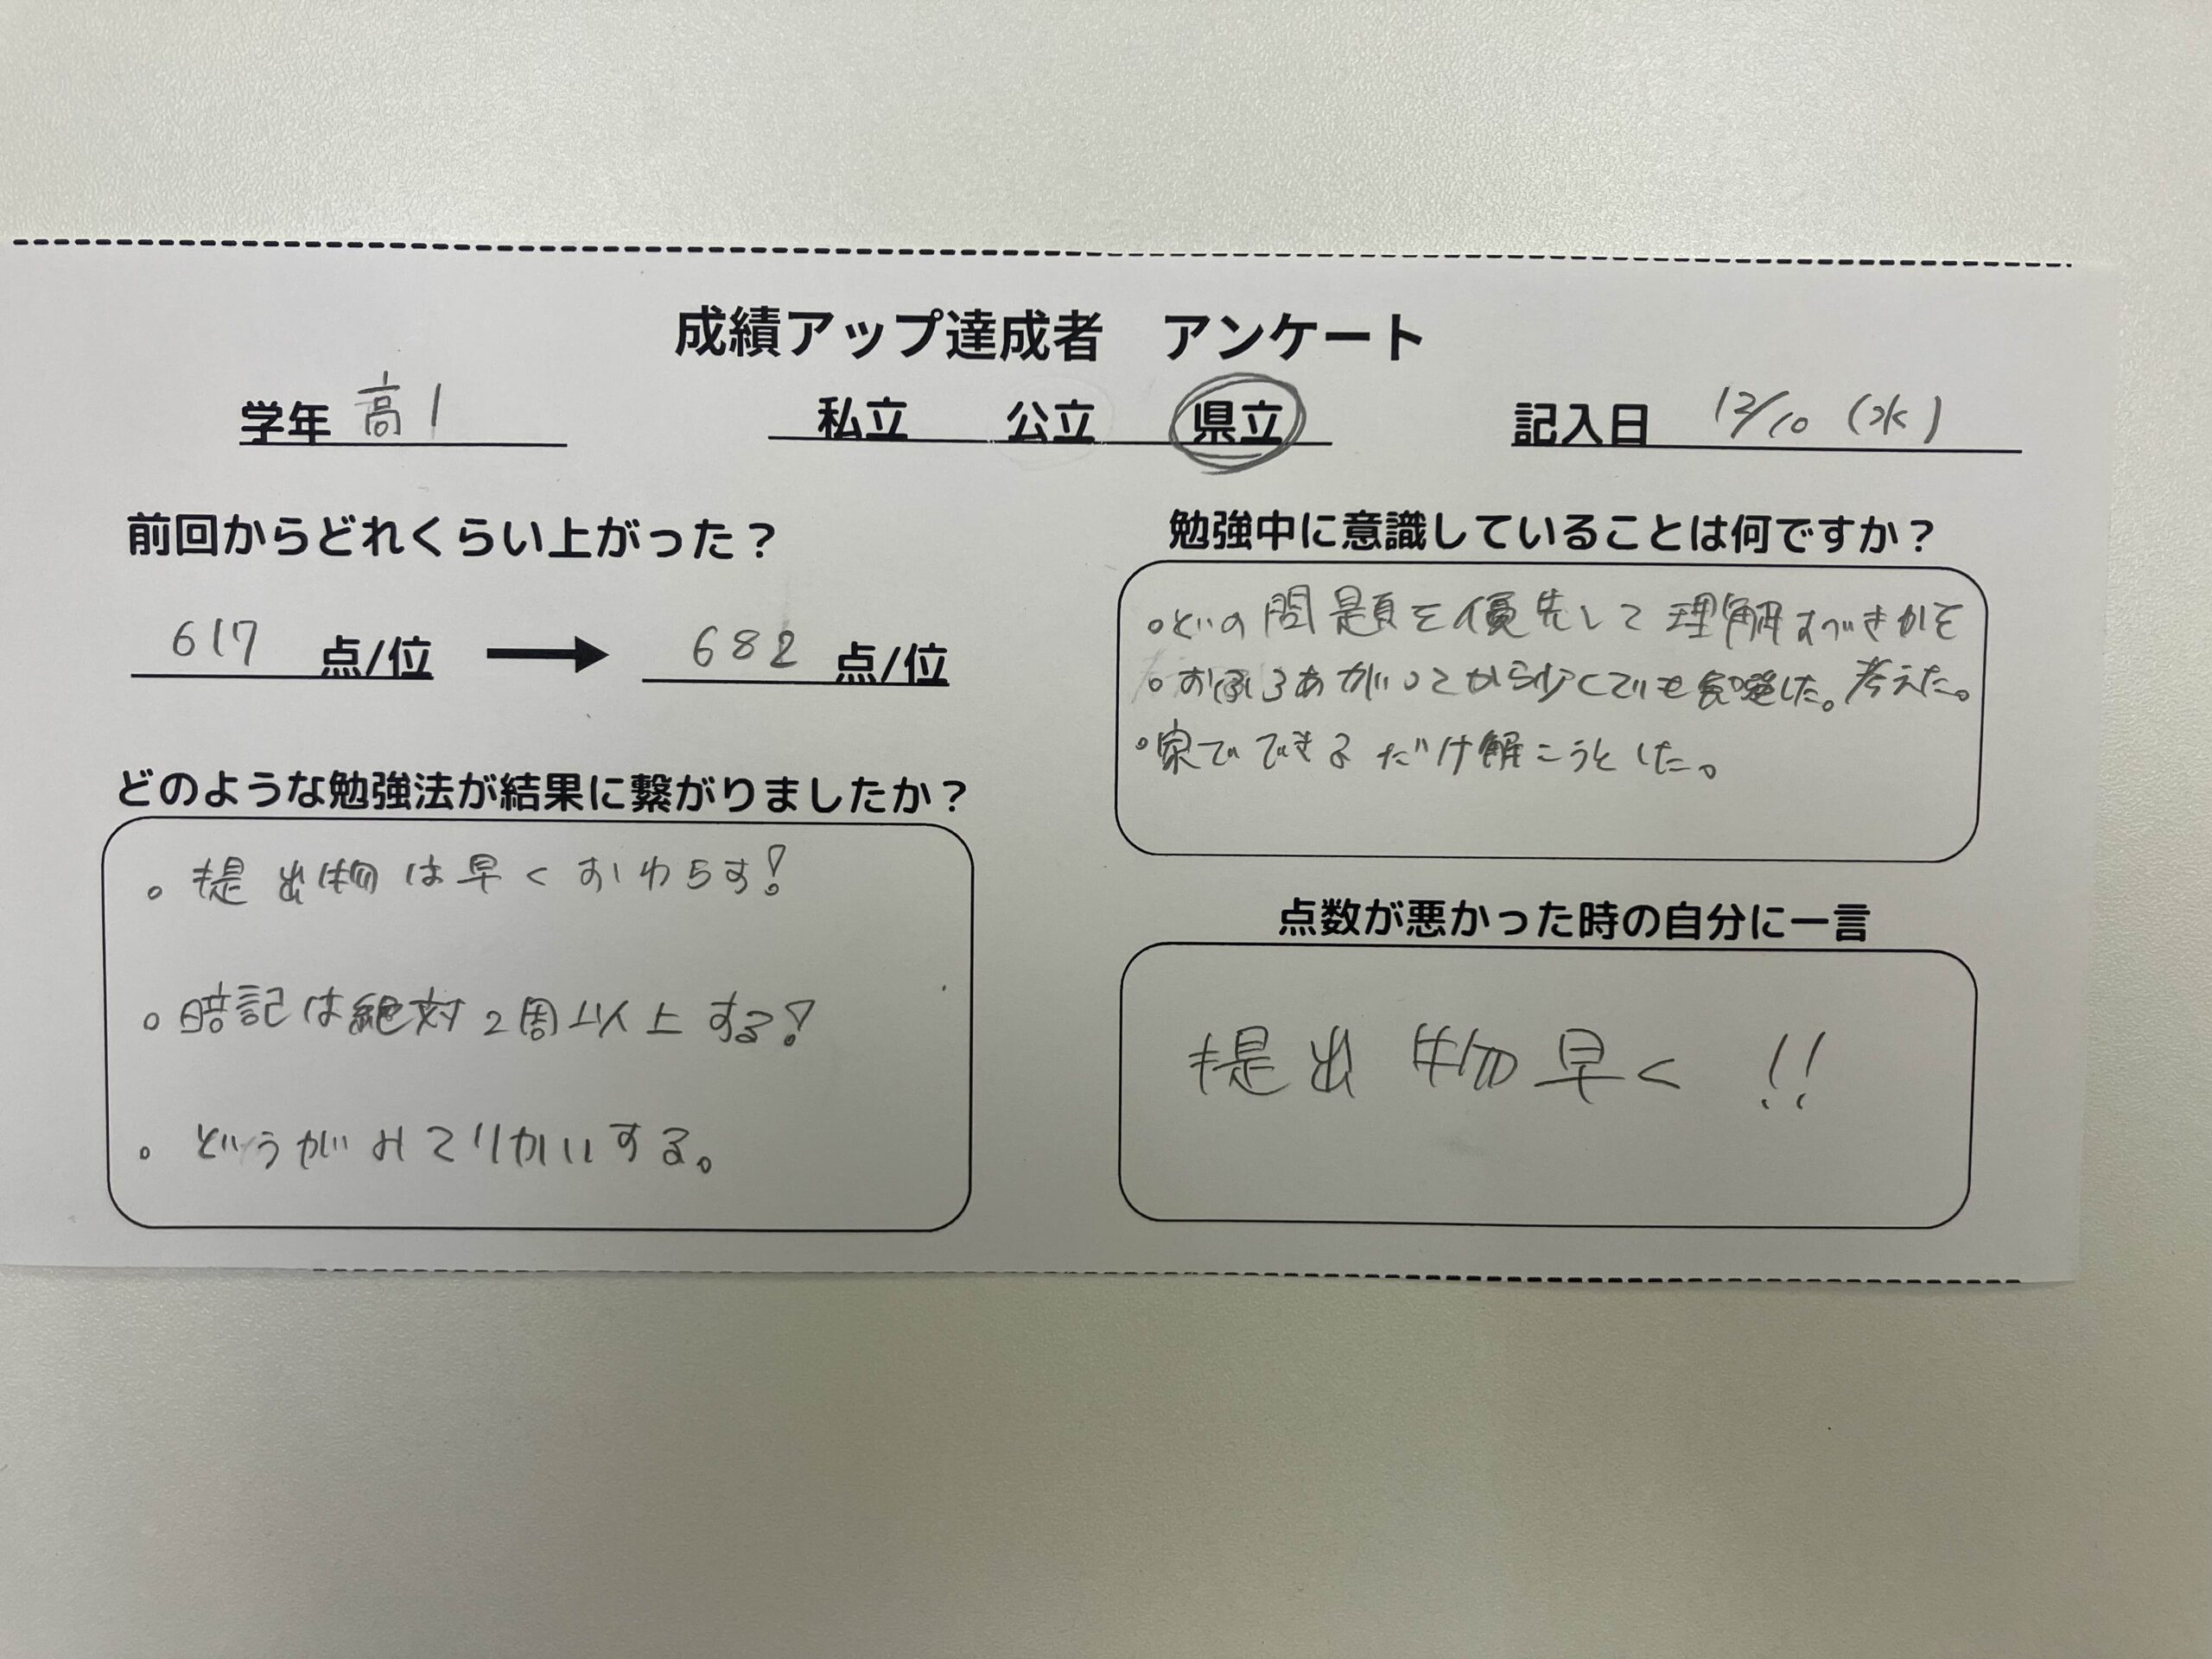 成績アップ達成者 アンケート
学年 高1 私立 公立 県立 記入日 12/10 (水)
前回からどれくらい上がった？
617 点/位 → 682 点/位
どのような勉強法が結果に繋がりましたか？
。提出物は早くおわらす!
。暗記は絶対2周以上する!
。どうがみてりかいする。
勉強中に意識していることは何ですか？
。どの問題を優先して理解すべきかを
。おふろあがってから少くでも勉強した。考えた。
。家でできるだけ解こうとした。
点数が悪かった時の自分に一言
提出物早く!!